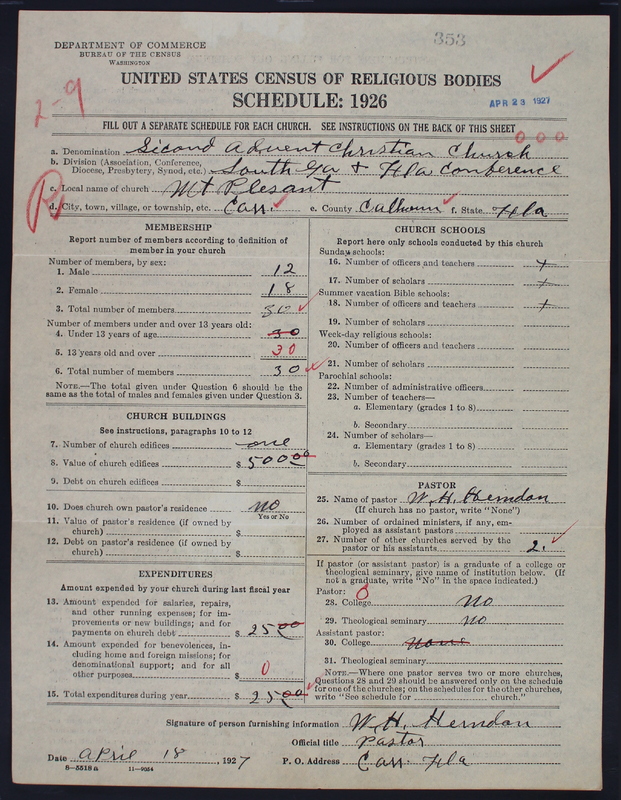 353
DEPARTMENT OF COMMERCE
BUREAU OF THE CENSUS
WASHINGTON
UNITED STATES CENSUS OF RELIGIOUS BODIES
SCHEDULE: 1926
APR 23 1927
2-9
FILL OUT A SEPARATE SCHEDULE FOR EACH CHURCH. SEE INSTRUCTIONS ON THE BACK OF THIS SHEET
000
a. Denomination Second Advent Christian Church
b. Division (Association, Conference, Diocese, Presbytery, Synod, etc.) South Ga & Fla Conference
c. Local name of church Mt Plesant
R
d. City, town, village, or township, etc. Carr e. County Calhoun f. State Fla
MEMBERSHIP
Report number of members according to definition of
member in your church
Number of members, by sex:
1. Male 12
2. Female 18
3. Total number of members 30
Number of members under and over 13 years old:
4. Under 13 years of age 30
5. 13 years old and over 30
6. Total number of members 30
NOTE.—The total given under Question 6 should be the
same as the total of males and females given under Question 3.
CHURCH BUILDINGS
See instructions, paragraphs 10 to 12
7. Number of church edifices one
8. Value of church edifices $ 50000
9. Debt on church edifices $
10. Does church own pastor's residence no
Yes or No
11. Value of pastor's residence (if owned by
church) $
12. Debt on pastor's residence (if owned by
church) $
EXPENDITURES
Amount expended by church during last fiscal year
13. Amount expended for salaries, repairs,
and other running expenses; for im-
provements or new buildings; and for
payments on church debt $ 2500
14. Amount expended for benevolences, in-
cluding home and foreign missions; for
denominational support; and for all
other purposes $ 0
15. Total expenditures during year $ 2500
CHURCH SCHOOLS
Report here only schools conducted by this church
Sunday schools:
16. Number of officers and teachers +
17. Number of scholars +
Summer vacation Bible schools:
18. Number of officers and teachers +
19. Number of scholars
Week-day religious schools:
20. Number of officers and teachers
21. Number of scholars
Parochial schools:
22. Number of administrative officers
23. Number of teachers—
a. Elementary (grades 1 to 8)
b. Secondary
24. Number of scholars—
a. Elementary (grades 1 to 8)
b. Secondary
PASTOR
25. Name of pastor W. H. Herndon
(If church has no pastor, write "None")
26. Number of ordained ministers, if any, em-
ployed as assistant pastors
27. Number of other churches served by the
pastor or his assistants 2.
If pastor (or assistant pastor) is a graduate of a college or
theological seminary, give name of institution below. (If
not a graduate, write "No" in the space indicated.)
Pastor:
28. College no
29. Theological seminary no
Assistant pastor:
30. College none
31. Theological seminary
NOTE.—Where one pastor serves two or more churches,
Questions 28 and 29 should be answered only on the schedule
for one of the churches; on the schedules for the other churches,
write "See schedule for church."
Signature of person furnishing information W. H. Herndon
Official title Pastor
Date April 18, 1927 P. O. Address Carr Fla
8-5518a 11-9054